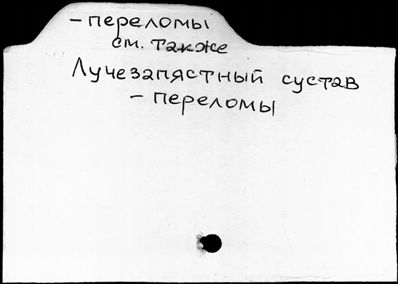 - переломы
см. также
Лучезапястный сустав
- переломы